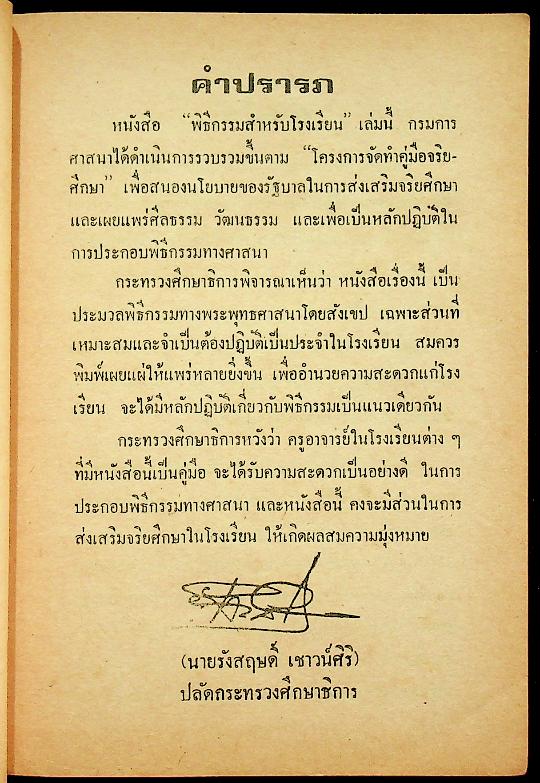 คำปรารภ
หนังสือ “พิธีกรรมสำหรับโรงเรียน” เล่มนี้ กรมการ
ศาสนาได้ดำเนินการรวบรวมขึ้นตาม “โครงการจัดทำคู่มือจริย-
ศึกษา” เพื่อสนองนโยบายของรัฐบาลในการส่งเสริมจริยศึกษา
และเผยแพร่ศีลธรรม วัฒนธรรม และเพื่อเป็นหลักปฏิบัติใน
การประกอบพิธีกรรมทางศาสนา
กระทรวงศึกษาธิการพิจารณาเห็นว่า หนังสือเรื่องนี้ เป็น
ประมวลพิธีกรรมทางพระพุทธศาสนาโดยสังเขป เฉพาะส่วนที่
เหมาะสมและจำเป็นต้องปฏิบัติเป็นประจำในโรงเรียน สมควร
พิมพ์เผยแผ่ให้แพร่หลายยิ่งขึ้น เพื่ออำนวยความสะดวกแก่โรง
เรียน จะได้มีหลักปฏิบัติเกี่ยวกับพิธีกรรมเป็นแนวเดียวกัน
กระทรวงศึกษาธิการหวังว่า ครูอาจารย์ในโรงเรียนต่าง ๆ
ที่มีหนังสือนี้เป็นคู่มือ จะได้รับความสะดวกเป็นอย่างดี ในการ
ประกอบพิธีกรรมทางศาสนา และหนังสือนี้ คงจะมีส่วนในการ
ส่งเสริมจริยศึกษาในโรงเรียน ให้เกิดผลสมความมุ่งหมาย
(นายรังสฤษดิ์ เชาวน์ศิริ)
ปลัดกระทรวงศึกษาธิการ